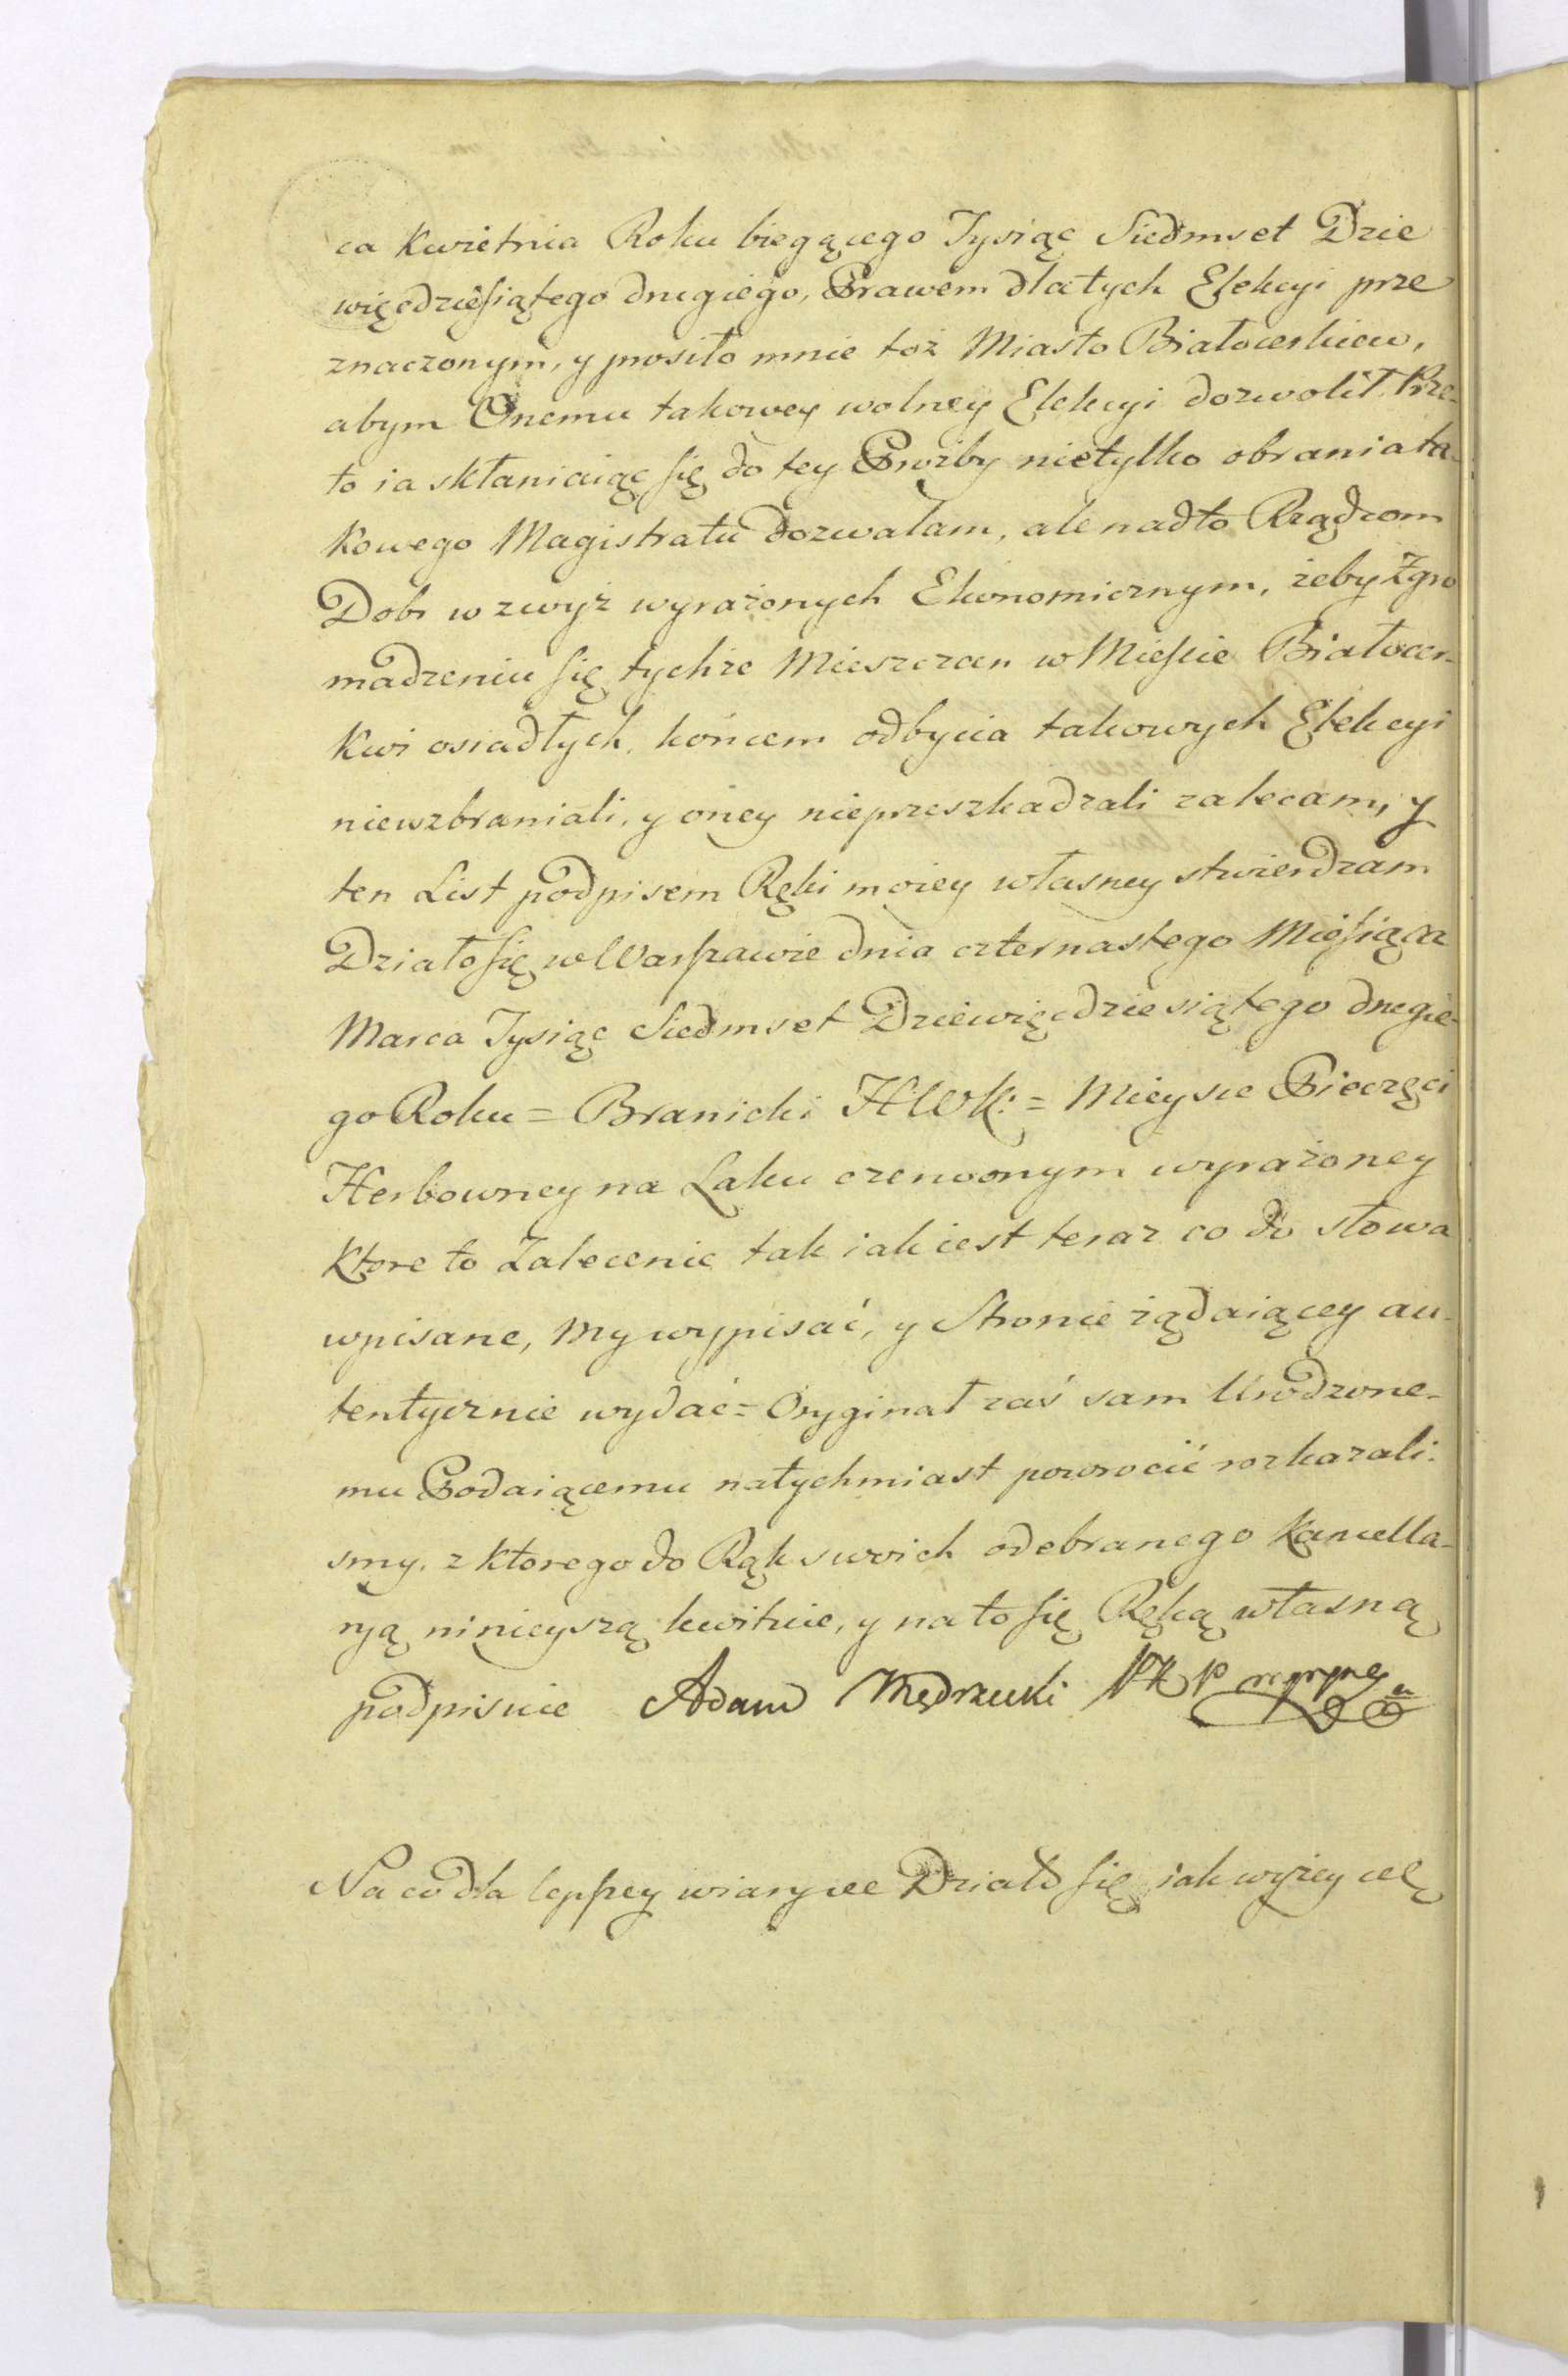 ca Kwietnia Roku biegącego Tysiąc Siedmset Dzie
więcdziesiątego drugiego, Prawem dla tych Elekcyi prze
znaczonym, y prosiło mnie toż Miasto Białocerkiew,
abym Onemu takowey wolney Elekcyi dozwolił. Prze-
to ia skłaniaiąc się do tey Prozby nietylko obrania ta-
kowego Magistratu dozwalam, ale nadto Rządcom
Dobr wzwyż wyrażonych Ekonomicznym, żeby Zgro
madzeniu się tychże Mieszczan w Mieście Białocer-
kwi osiadłych, końcem odbycia takowych Elekcyi
niewzbraniali, y oney nieprzeszkadzali zalecam, y
ten List podpisem Ręki moiey własney stwierdzam
Działo się w Warszawie dnia czternastego Miesiąca
Marca Tysiąc Siedmset Dziewięcdziesiątego drugie-
go Roku = Branicki HWK: = Mieysce Pieczęci
Herbowney na Laku czerwonym wyrażoney
Ktore to Zalecenie tak iak iest teraz co do słowa
wpisane, My wypisać, y Stronie żądaiącey au-
tentycznie wydać = Oryginał zaś sam Urodzone-
mu Podaiącemu natychmiast powrocić rozkazali-
smy. z ktorego do Rąk swoich odebranego Kancella-
ryą ninieyszą kwituie, y na to się Ręką własną
podpisuie Adam Mędrzecki
Na co dla lepszey wiary etc Działo się iak wyżey